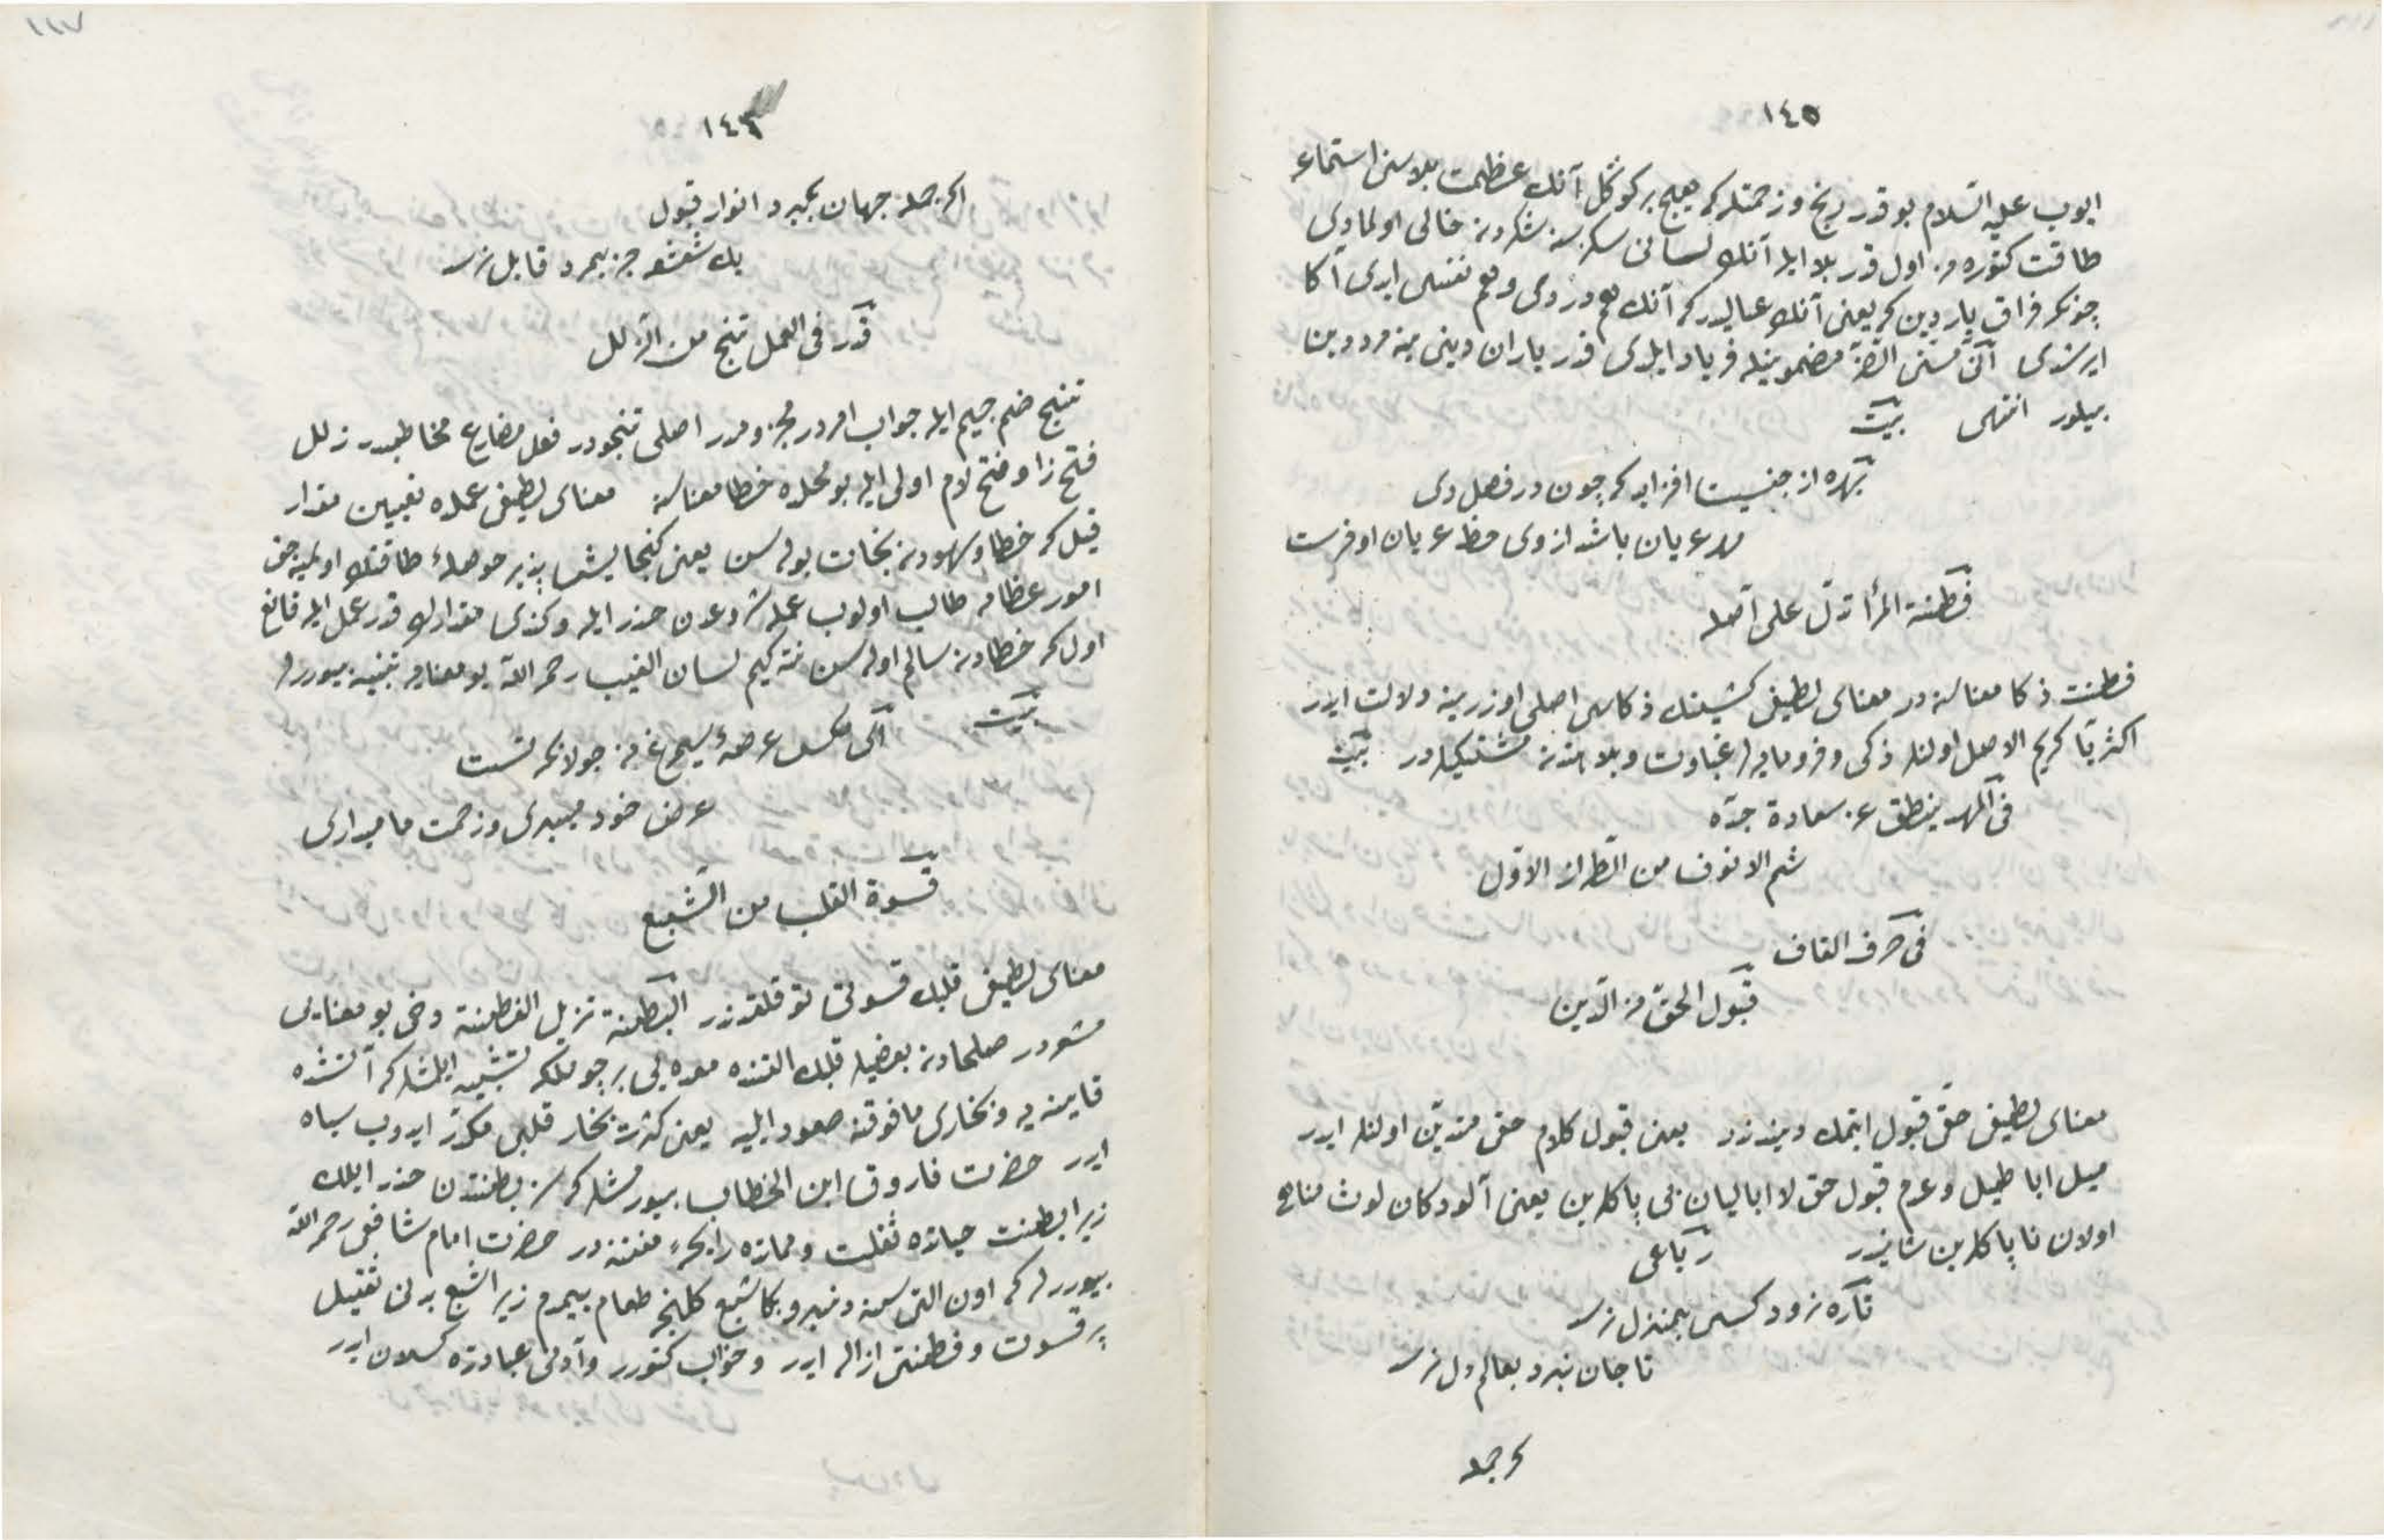 ١٤٥
ايوب عليه السلام بو قدر رنج و زحمتله كه هيچ بر كوكل آنك عظمت بلاسنى استماعه
طاقت كتوره مز اول قدر بلا ايله آنك لسانى سكز سنه شكردن خالى اولمادى
چونكه فراق يار دين كه يعنى آنك عياليدر كه آنك هم دردى و هم نفسى ايدى آكا
ايرشدى انى مسنى الضر مضمونيله فرياد ايلدى قدر ياران دينى ينه مرد دين
بيلور انتهى بيت
بهره از جنسيت افزايد كه چون در فصل دى
عريان باشد از وى حظ عريان اوفرست
فطنة المرأ تدل على اصله
فطنت ذكا معناسنه در معناى لطيفى كشينك ذكاسى اصلى اوزرينه دلالت ايدر
اكثريا كريم الاصل اولنلر ذكى و فرومايه لر غباوت و بلاهتدن بيت
فى المهد ينطق عن سعادة جده
شم الانوف من الطراز الاول
فى حرف القاف
قبول الحق من الدين
معناى لطيفى حقى قبول ايتمك ديندندر يعنى قبول كلام حق متدين اولنلر ايدر
ميل اباطيل و عدم قبول حق لا اباليان بى پاكلرين يعنى آلودكان لوث مناهى
اولان ناپاكلرين شانيدر رباعى
تا ره نرود كسى بمنزل نرسد
تا جان نبرد بعالم دل نرسد
كر جمله
١٤٦
اكر جمله جهان بكيرد انوار قبول
يك شعشعه جز بمرد قابل نرسد
قدر فى العمل تنج من الزلل
تنج ضم جيم ايله جواب امردر مجزومدر اصلى تنجودر فعل مضارع مخاطبدر زلل
فتح زا و فتح لام اولى ايله بو محلده خطا معناسنه معناى لطيفى عملده تعيين مقدار
قيل كه خطا و سهودن نجات بوله سن يعنى كنجايش پذير حوصلۀ طاقتك اولميه جق
امور عظامه طالب اولوب عمله شروعدن حذر ايله و كندى مقدارك قدر عمل ايله قانع
اول كه خطادن سالم اوله سن نته كيم لسان الغيب رحمه الله بو معنايه تنبيه بيوررلر
بيت اى مكس عرصۀ سيمرغ نه جولانكه تست
عرض خود ميبرى و زحمت ما ميدارى
قسوة القلب من الشبع
معناى لطيفى قلبك قسوتى طوقلقدندر البطنة تزيل الفطنة دخى بو معنايى
مشعردر صلحادن بعضيلر قلبك التنده معده يى بر چوملكه تشبيه ايلمشلر كه آتشده
قاينيه و بخارى مافوقنه صعود ايليه يعنى كثرت بخار قلبى مكدر ايدوب سياه
ايدر حضرت فاروق ابن الخطاب بيورمشلر كه سز بطنتدن حذر ايلك
زيرا بطنت حياتده ثقلت و مماتده رايحۀ منتنه در حضرت امام شافعى رحمه الله
بيوررلر كه اون التى سنه دنبرو بكا شبع كلنجه طعام ييمدم زيرا شبع بدنى ثقيل
پر قسوت و فطنتى ازاله ايدر و خواب كتورر و آدمى عبادتده كسلان ايدر